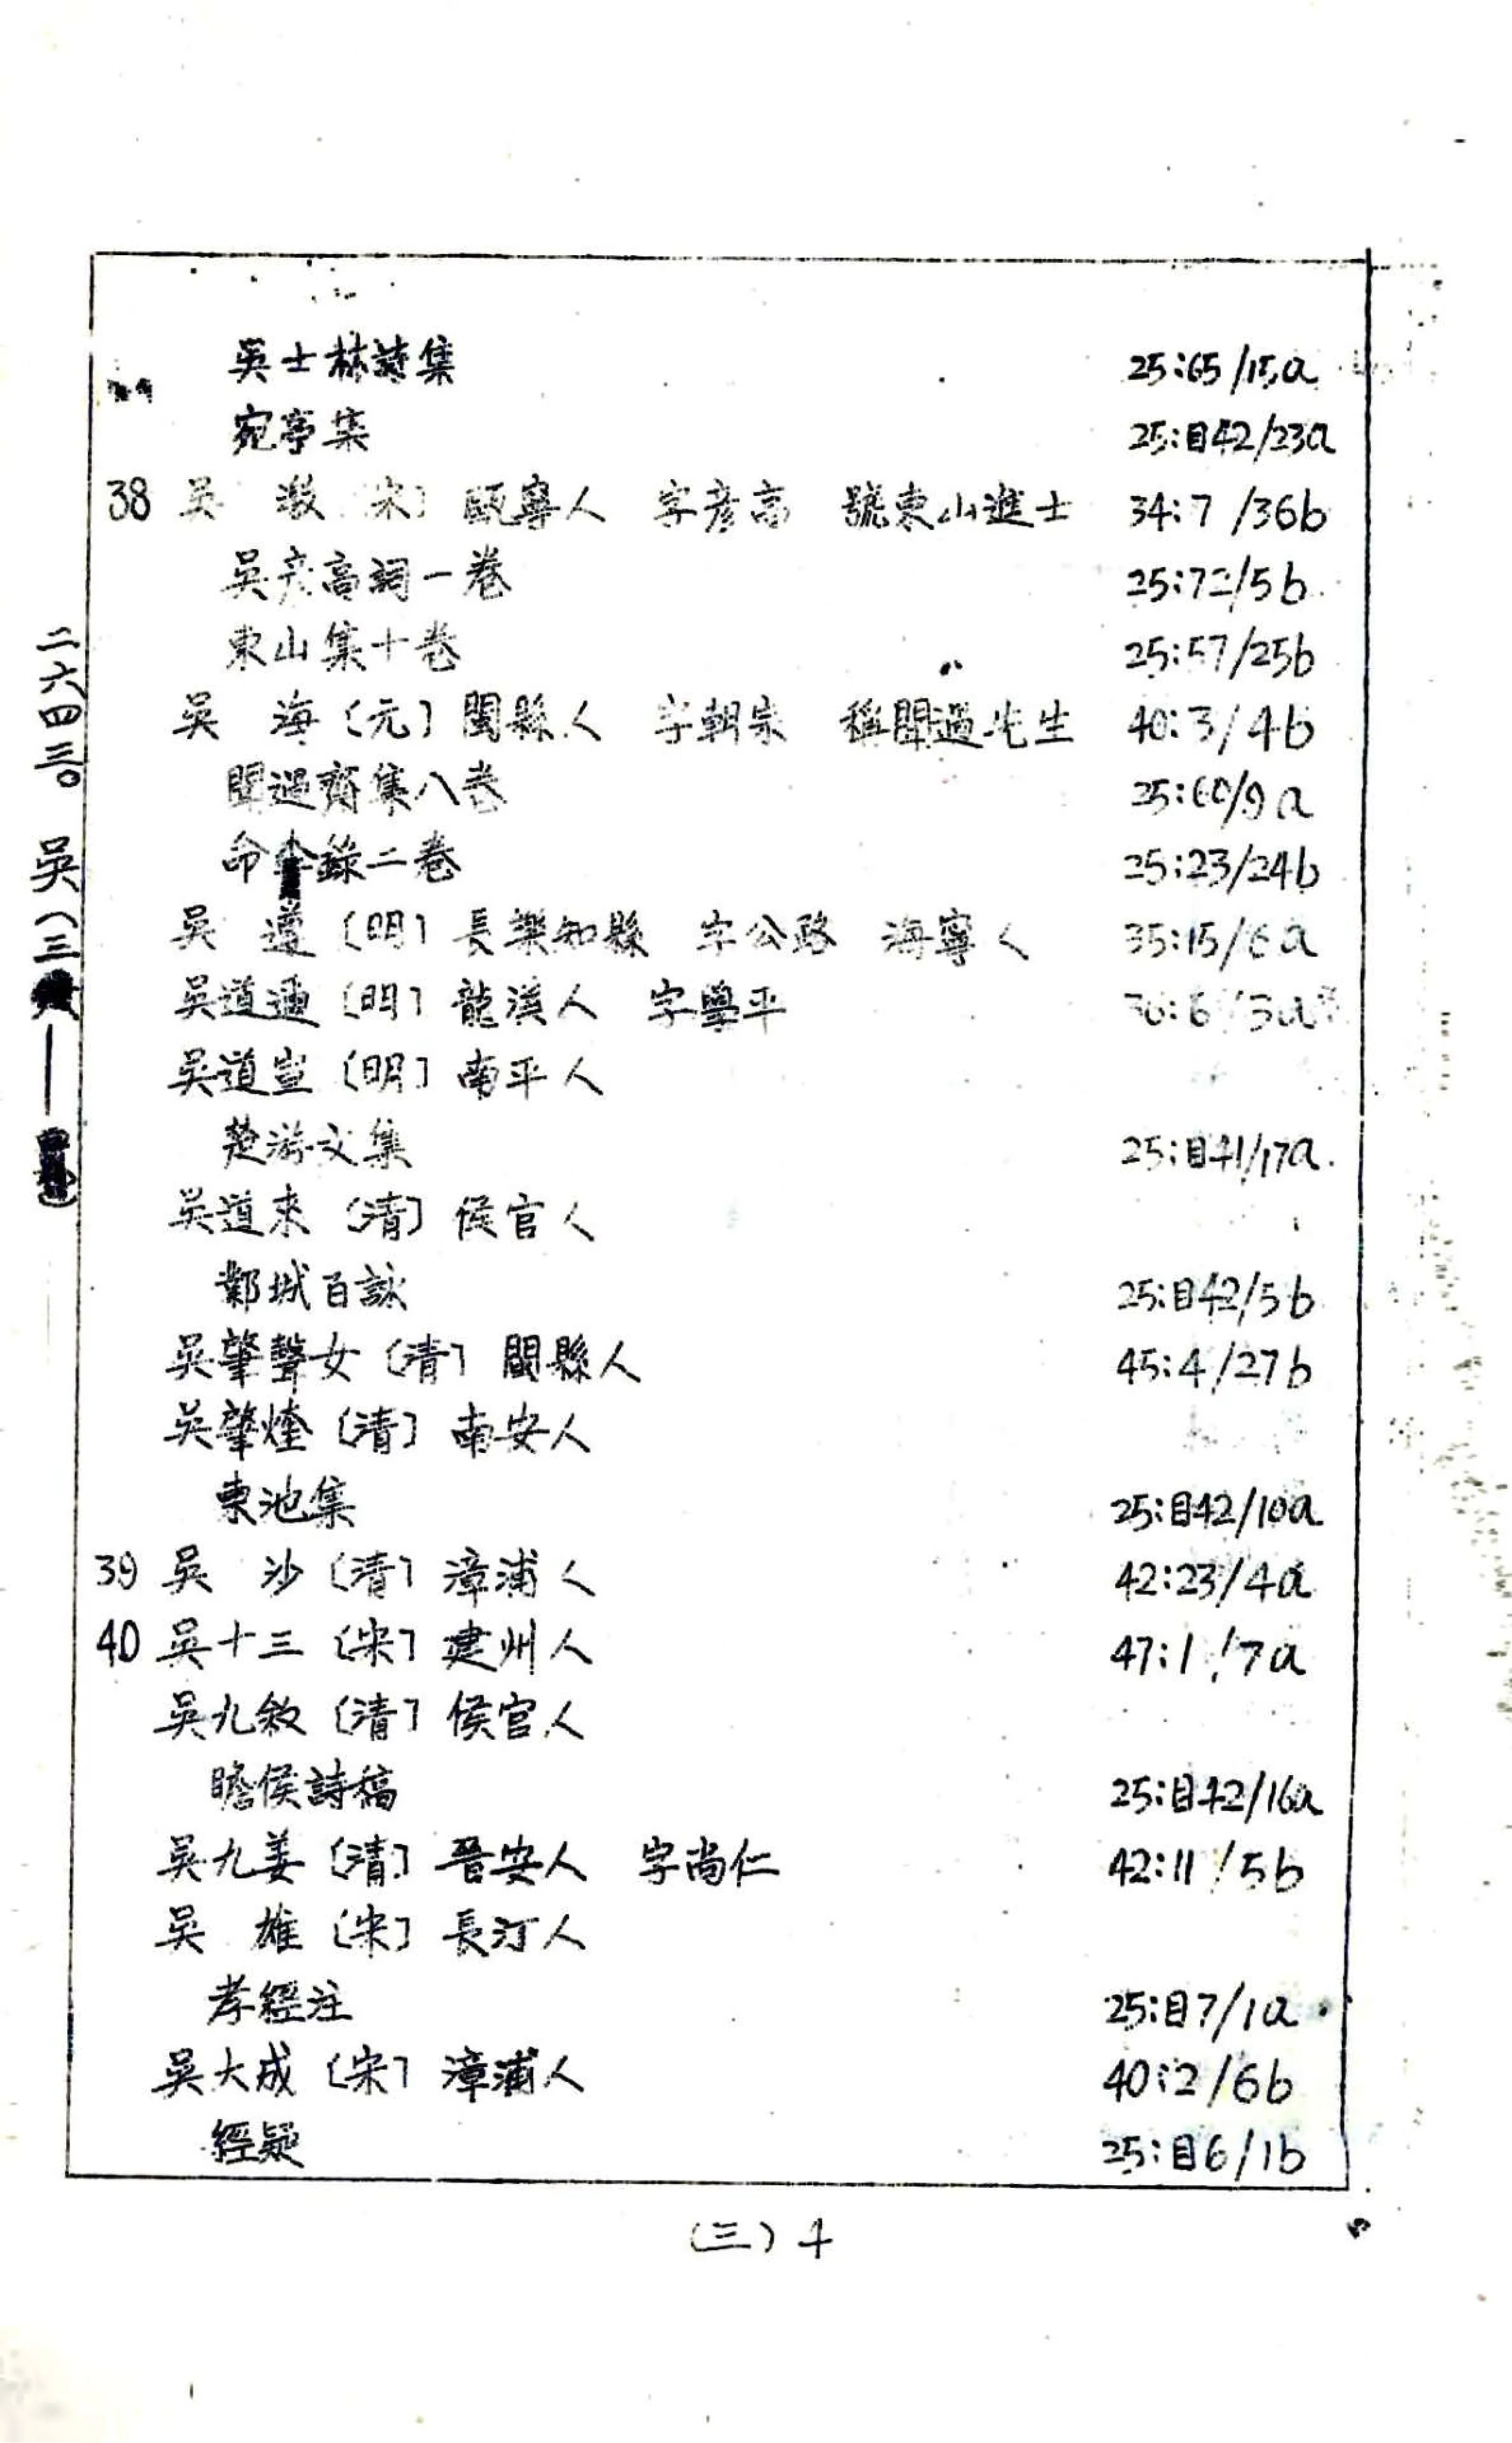 二六四三。 吳(三
吳士林詩集 25:65/15a
宛亭集 25:目42/23a
38 吳 激〔宋〕甌寧人 字彥高 號東山進士 34:7/36b
吳彥高詞一卷 25:72/5b
東山集十卷 25:57/25b
吳 海〔元〕閩縣人 字朝宗 稱聞過先生 40:3/4b
聞過齋集八卷 25:60/9a
命 錄二卷 25:23/24b
吳 遵〔明〕長樂知縣 字公路 海寧人 35:15/6a
吳道通〔明〕龍溪人 字學平
吳道豈〔明〕南平人
楚游文集 25:目41/17a
吳道來〔清〕侯官人
鄴城百詠 25:目42/5b
吳肇聲女〔清〕閩縣人 45:4/27b
吳肇煃〔清〕南安人
東池集 25:目42/10a
39 吳 沙〔清〕漳浦人 42:23/4a
40 吳十三〔宋〕建州人 47:1/7a
吳九敘〔清〕侯官人
瞻侯詩稿 25:目42/16a
吳九姜〔清〕晉安人 字尚仁 42:11/5b
吳 雄〔宋〕長汀人
孝經注 25:目7/1a
吳大成〔宋〕漳浦人 40:2/6b
經疑 25:目6/1b
(三)4